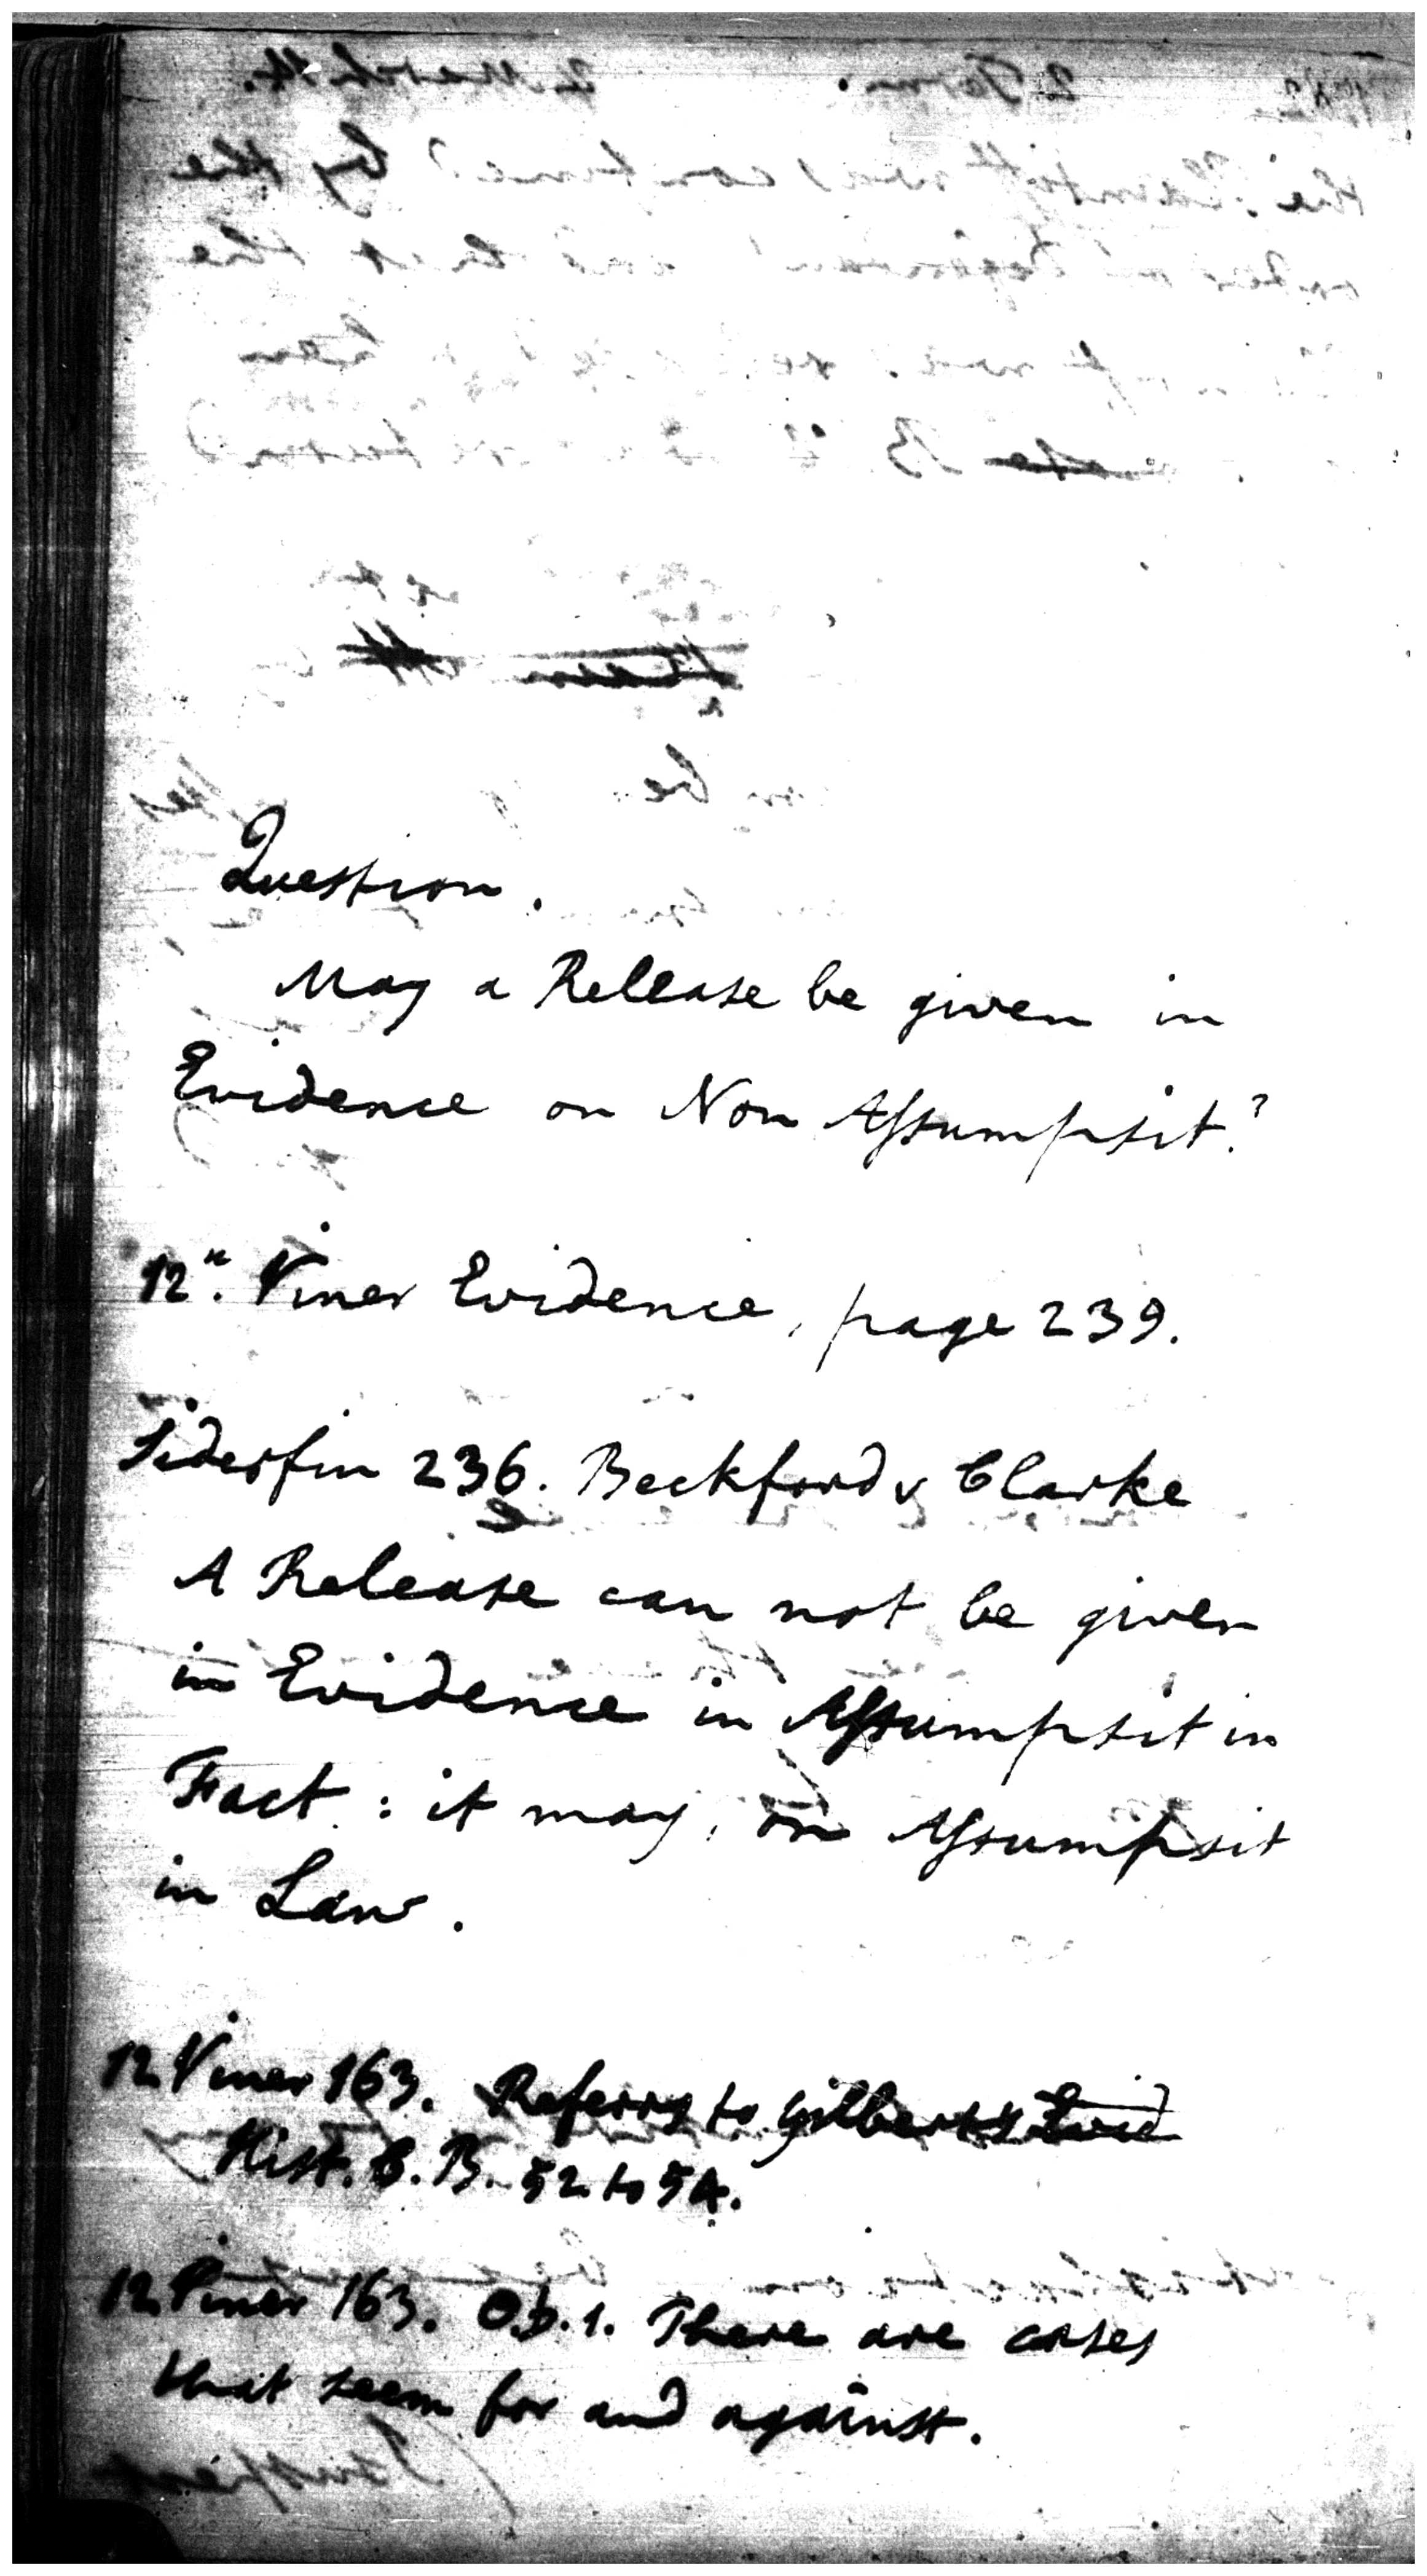 Question.
May a Release be given in
Evidence on Non Assumpsit?
12. Viner Evidence, page 239.
Siderfin 236. Beckford v Clarke
A Release can not be given
in Evidence in Assumpsit in
Fact : it may, on Assumpsit
in Law.
12 Viner 163. Referrs to Gilberts Evid
Hist. C. B. 52 to 54.
12 Viner 163. O.b.1. There are cases
that seem for and against.